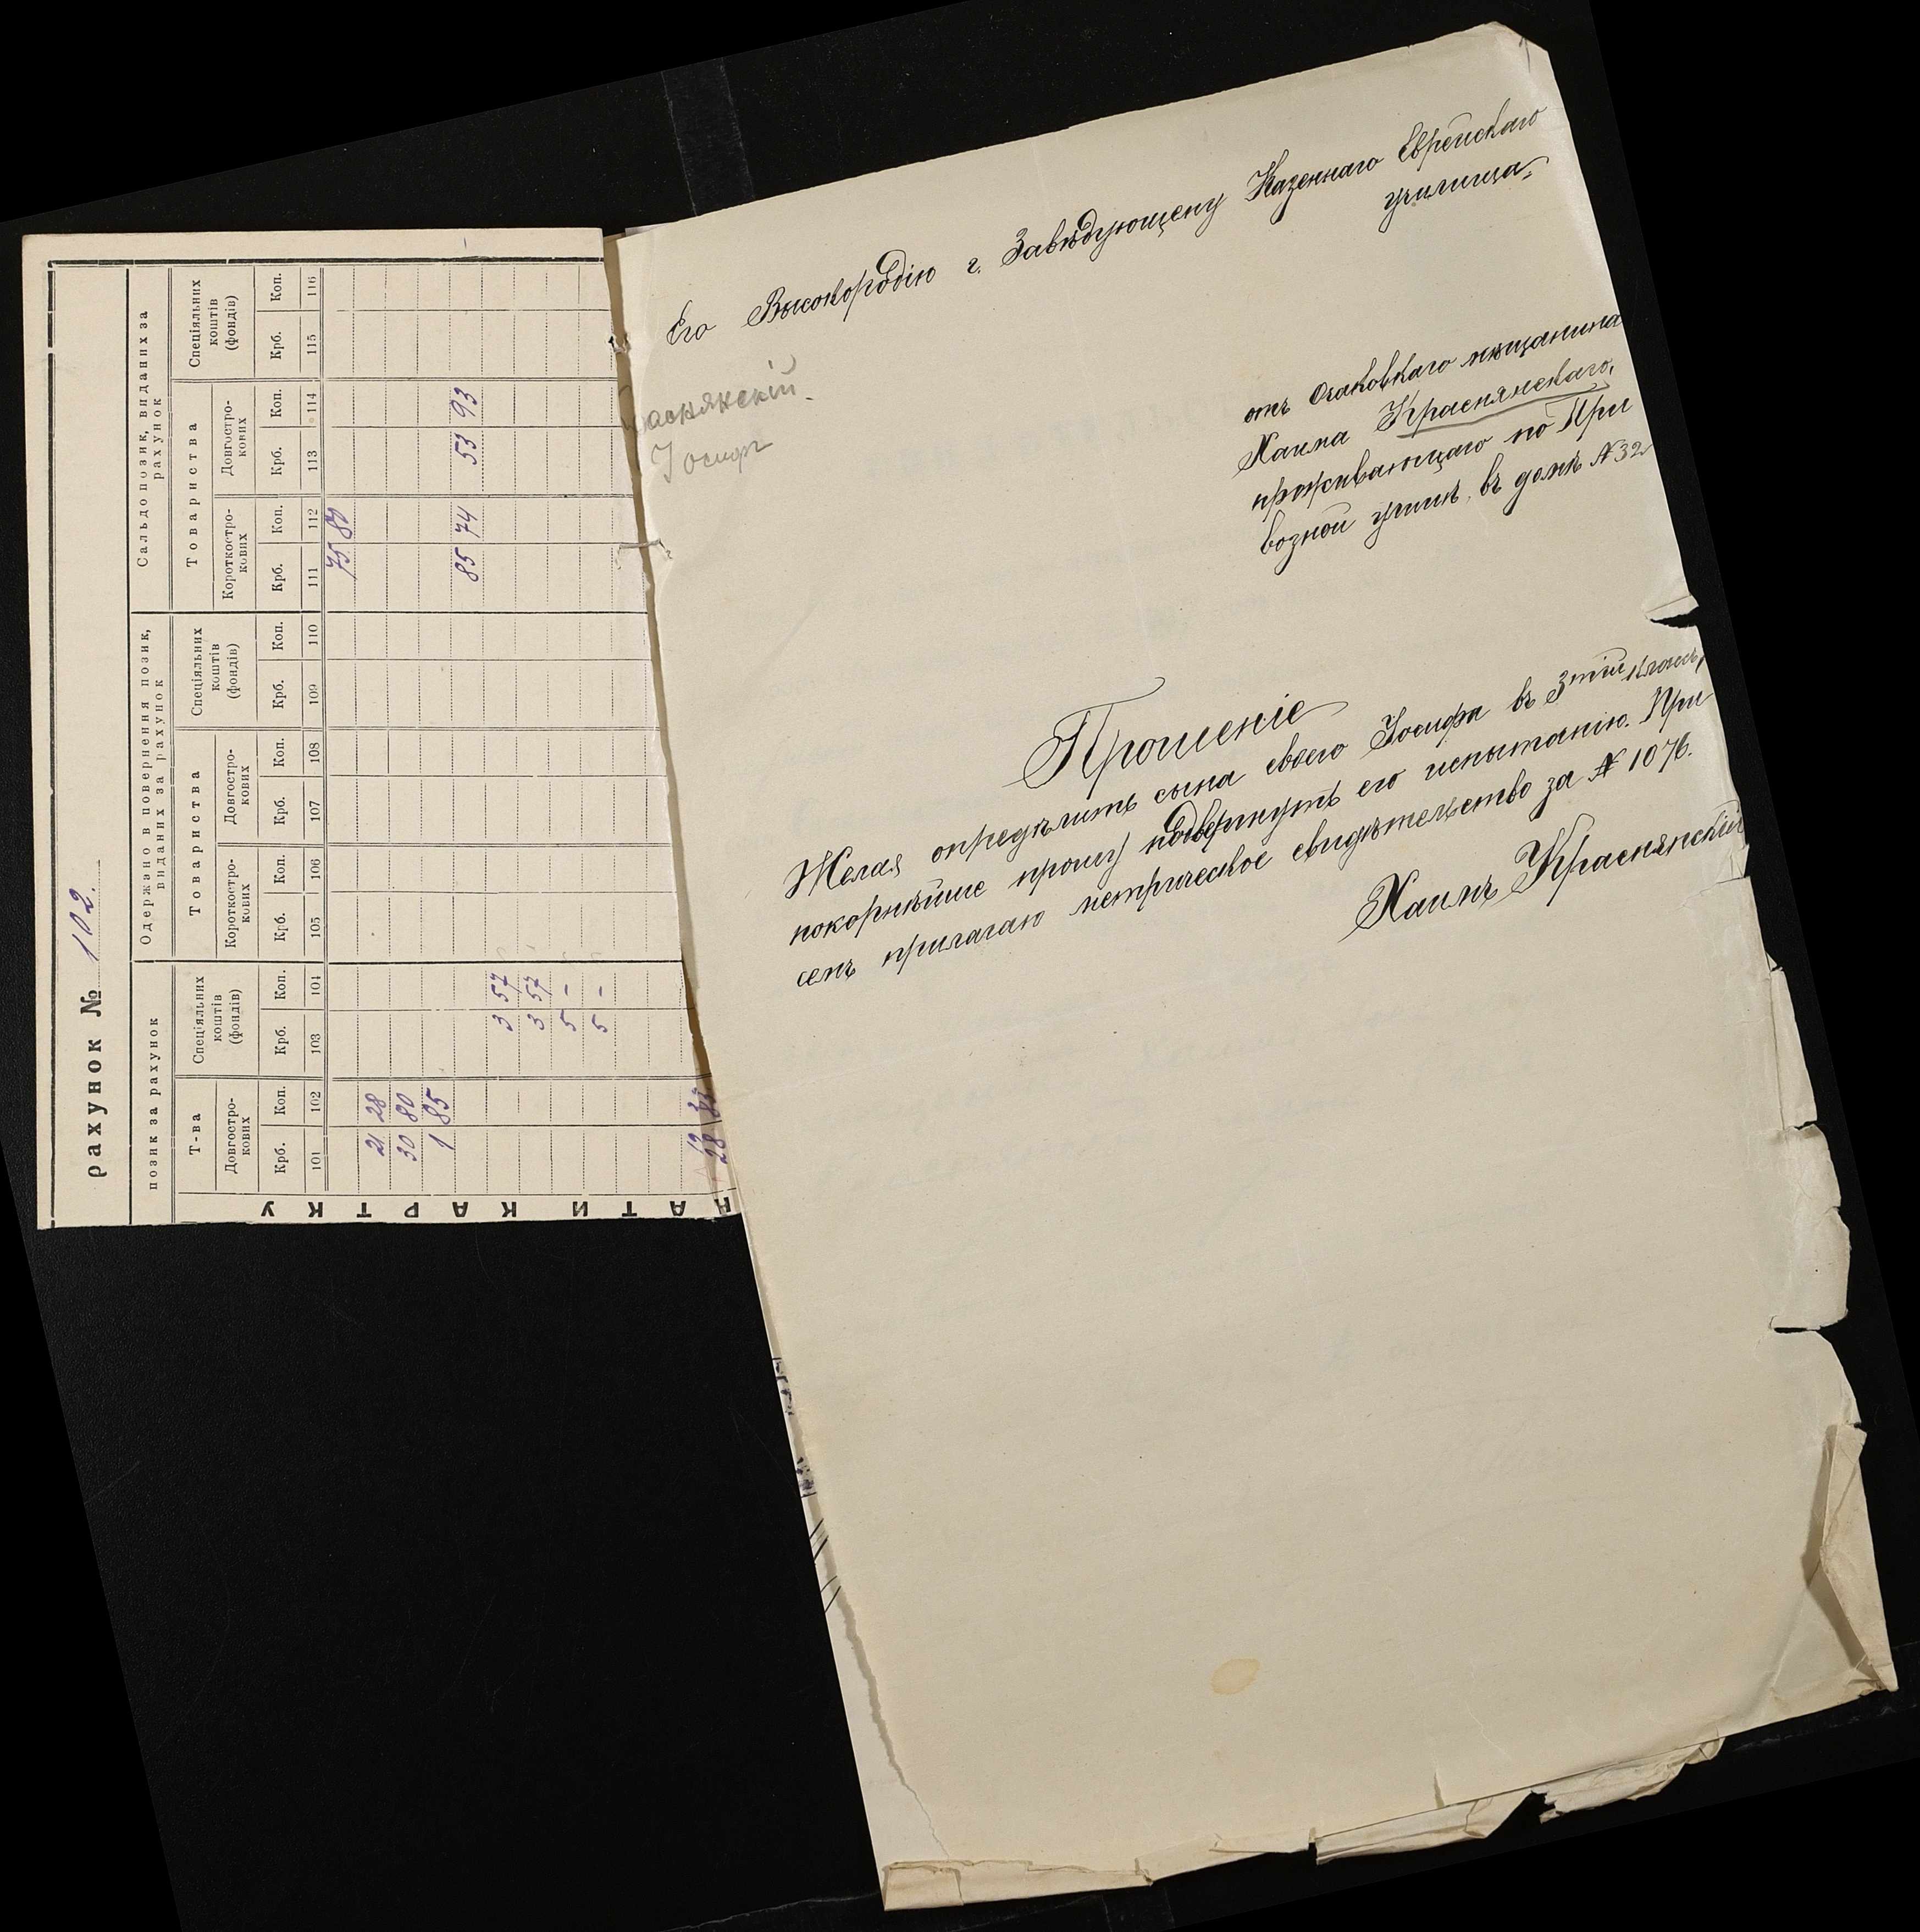 рахунок № 102.
позик за рахунок
Одержано в повернення позик, виданих за рахунок
Сальдо позик, виданих за рахунок
Т-ва
Спеціяльних коштів (фондів)
Товариства
Спеціяльних коштів (фондів)
Товариства
Спеціяльних коштів (фондів)
Довгостро-кових
Короткостро-кових
Довгостро-кових
Короткостро-кових
Довгостро-кових
Крб. Коп. Крб. Коп. Крб. Коп. Крб. Коп. Крб. Коп. Крб. Коп. Крб. Коп. Крб. Коп.
101 102 103 104 105 106 107 108 109 110 111 112 113 114 115 116
75 80
21 28
30 80
1 85 85 74 53 93
3 57
3 57
5 -
5 -
АТИ КАРТКУ
Его Высокородію г. Завѣдующему Казеннаго Еврейскаго
училища.
Іосифъ
отъ Очаковкаго мѣщанина
Хаима Краснянскаго,
проживающаго по При
возной улицѣ, въ домѣ №32
Прошеніе
Желая опредѣлить сына своего Іосифа въ 3тій классъ,
покорнѣйше прошу подвергнуть его испытанію. При
семъ прилагаю метрическое свидѣтельство за № 1076.
Хаимъ Краснянскій